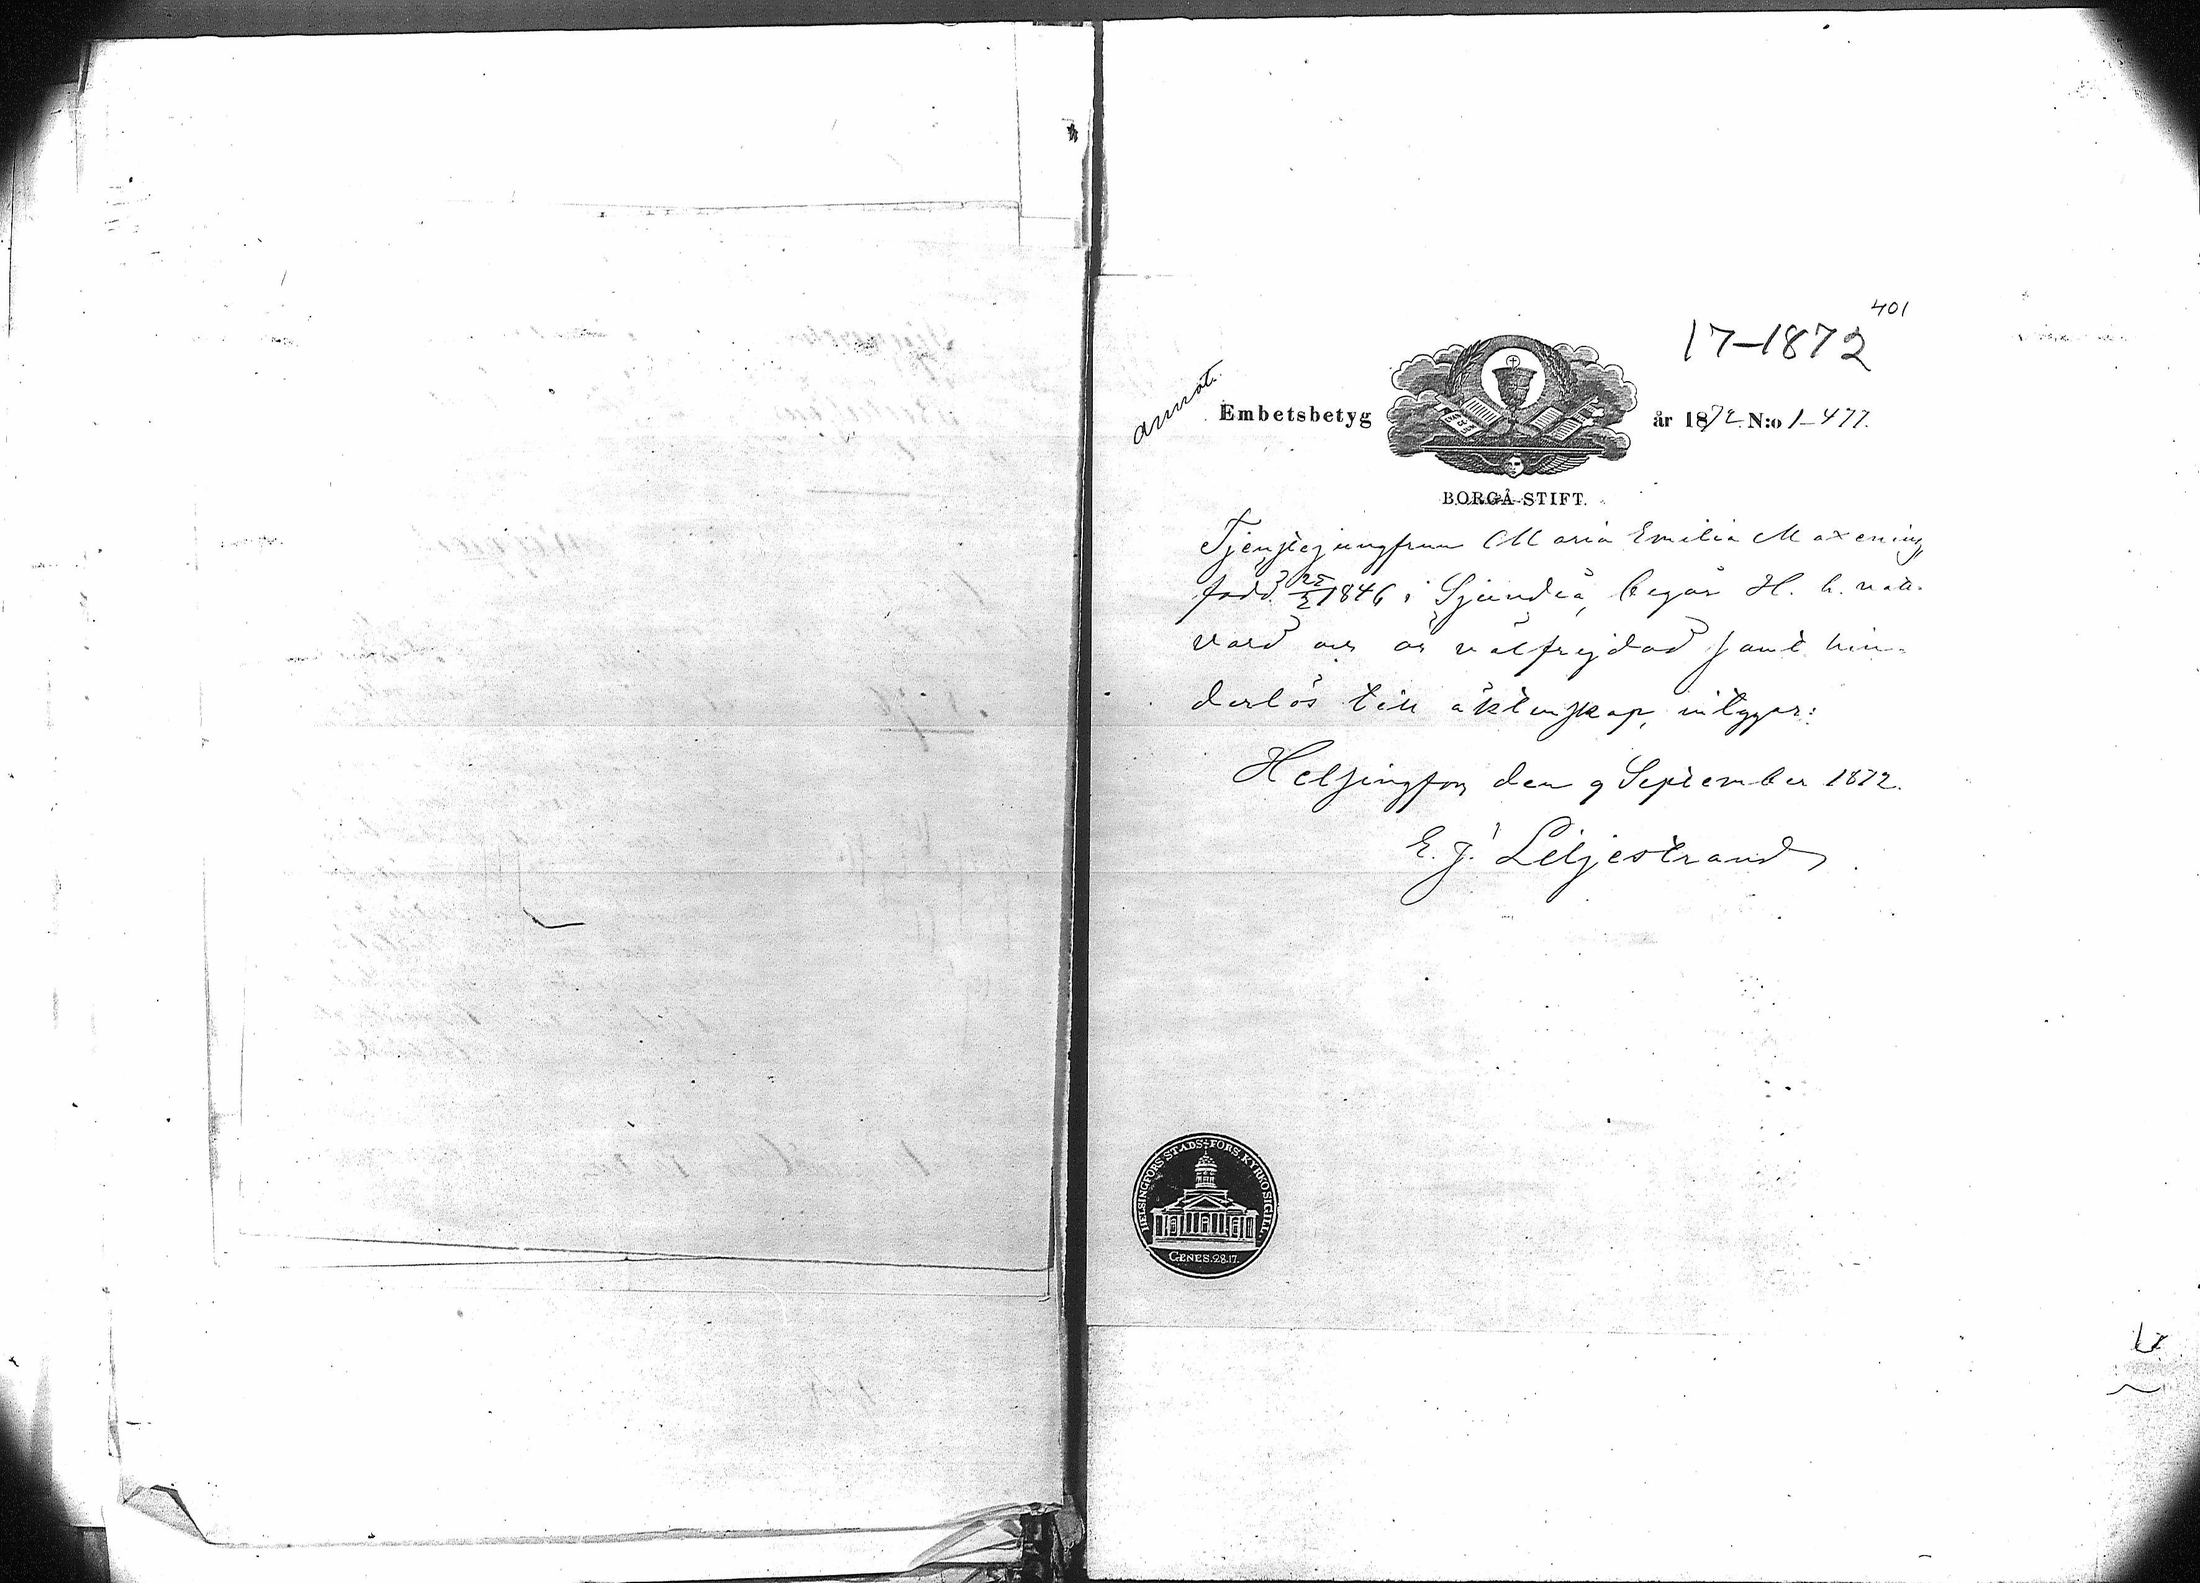 401
17-1872
annot.
Embetsbetyg år 1872 N:o 1-477.
BORGÅ STIFT.
Tjenstejungfrun Maria Emilia Maxenius,
född 25/2 1846 i Sjundeå, begår H. h. natt-
vard och är välfrejdad samt hin-
derlös till äktenskap, intygar:
Helsingfors den 9 September 1872.
E. J. Liljestrand
HELSINGFORS STADS-FÖRS. KYRKOSIGILL.
GENES. 28.17.